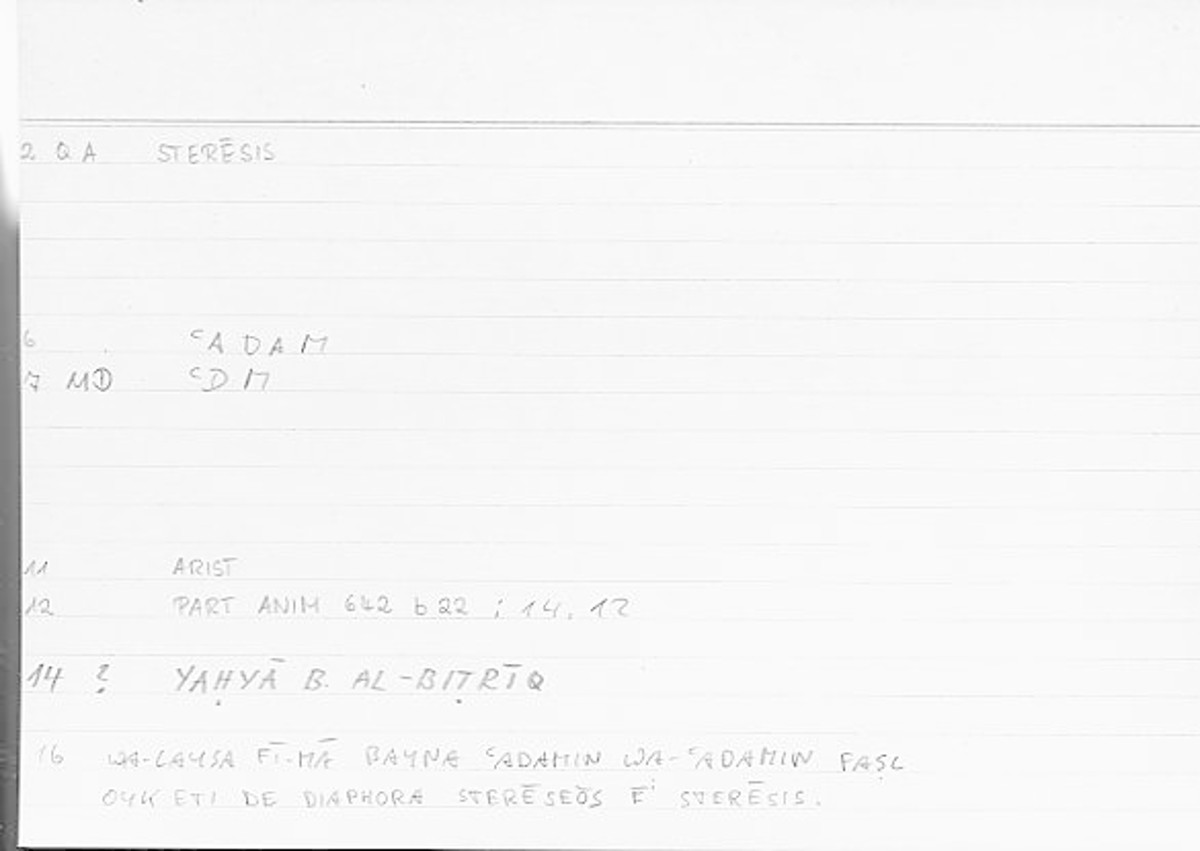 2 Q A STERĒSIS
6 ᶜADAM
7 MD ᶜDM
11 ARIST
12 PART ANIM 642 b 22 ; 14, 12
14 ? YAḤYĀ B. AL-BIṬRĪQ
16 WA-LAYSA FĪ-MĀ BAYNA ᶜADAMIN WA-ᶜADAMIN FAṢL
OYK ETI DE DIAPHORA STERĒSEŌS Ē' STERĒSIS.